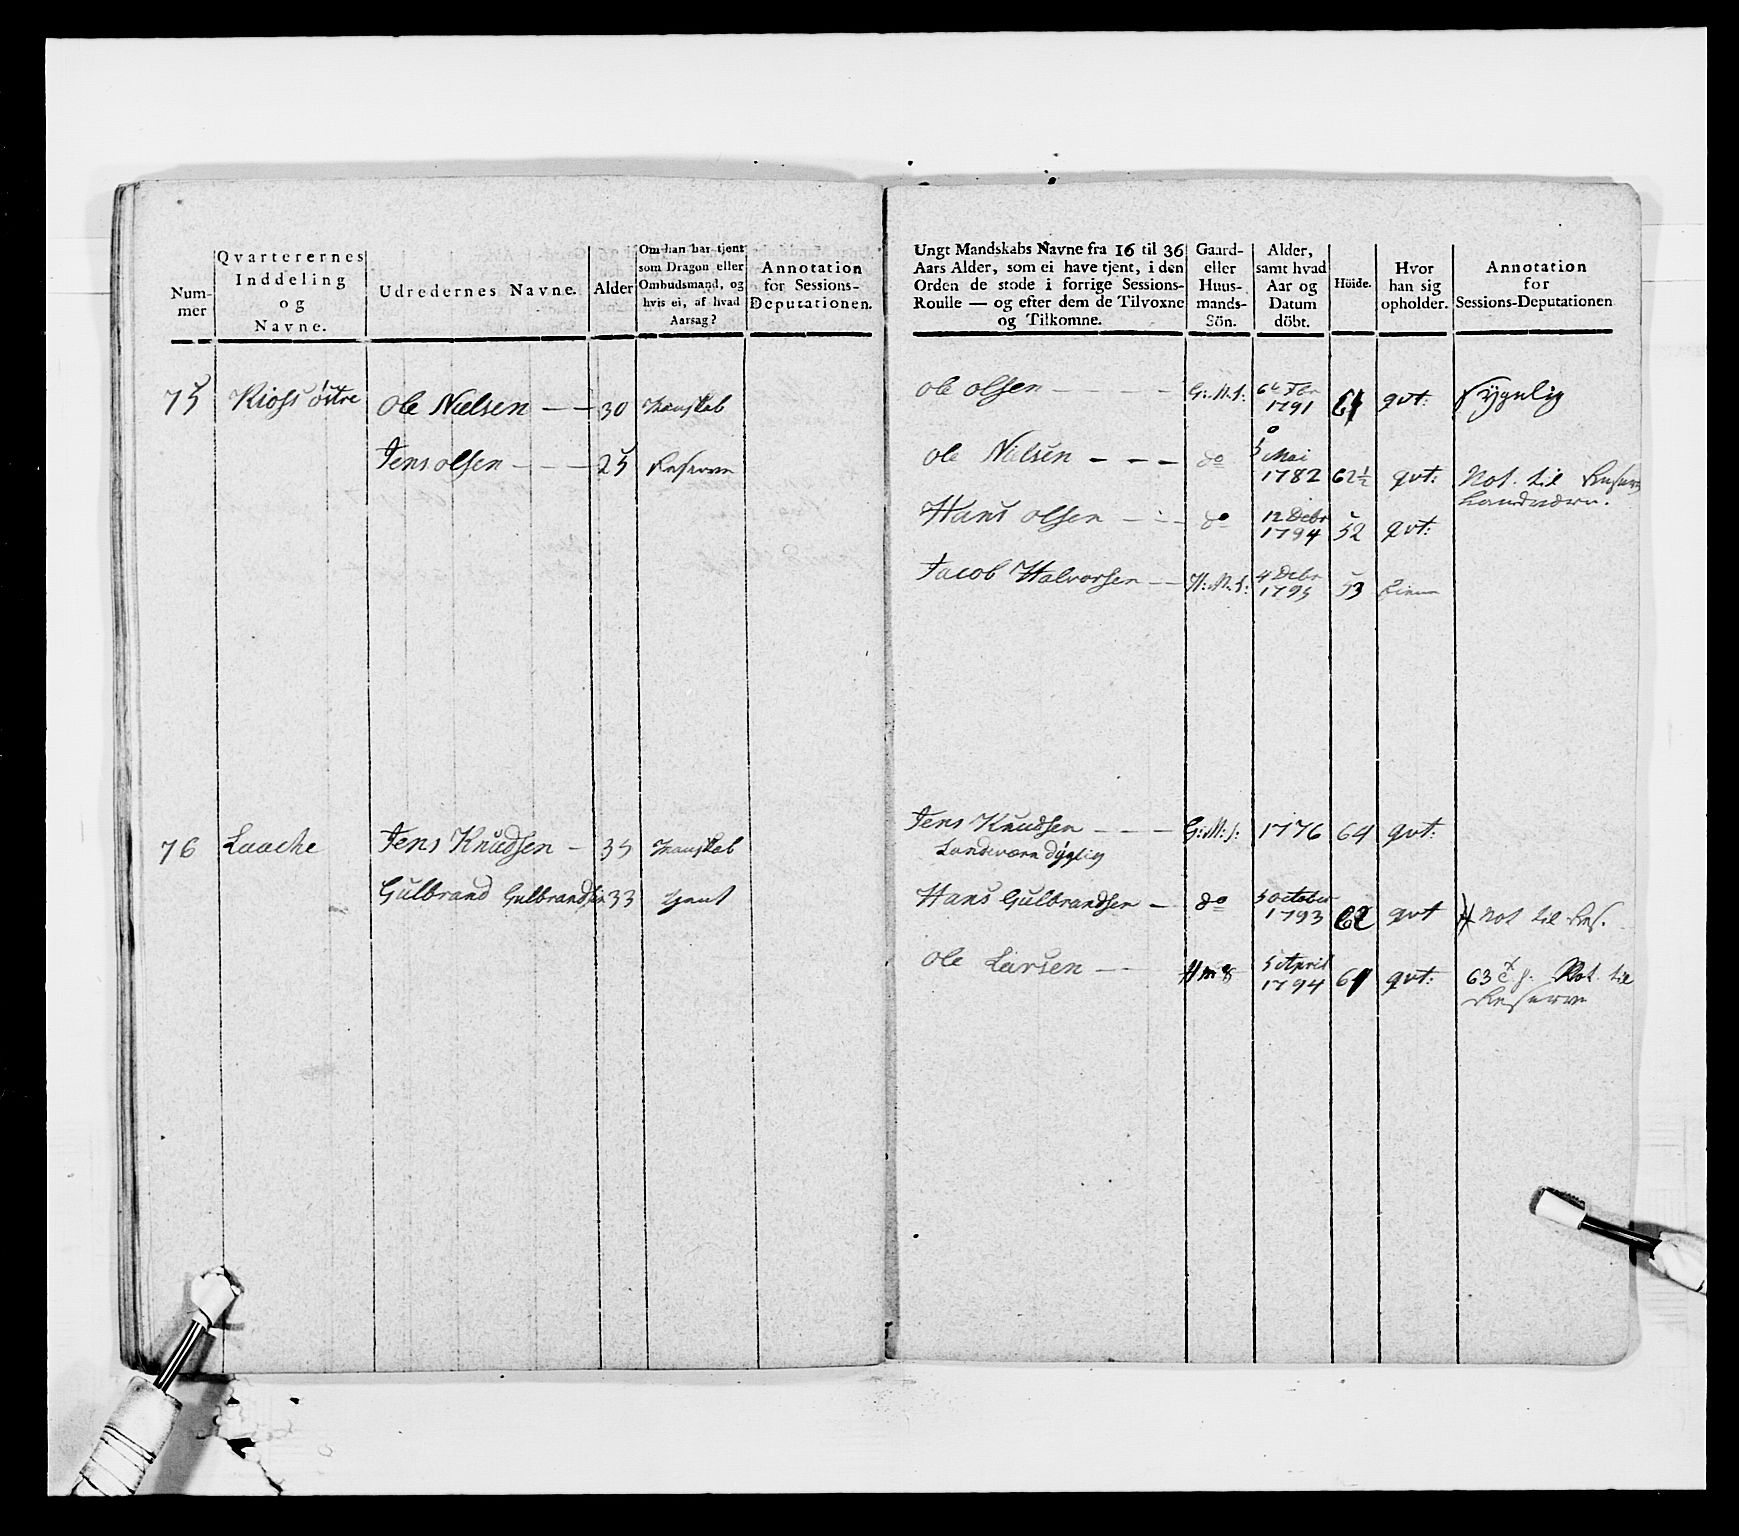 Num-
mer
Qvarterernes
Inddeling
og
Navne.
Udredernes Navne.
Alder
Om han har tjent
som Dragon eller
Ombudsmand, og
hvis ei, af hvad
Aarsag?
Annotation
for Sessions-
Deputationen.
75 Kioss østre Ole Nielsen — — 30 Mauskab
Jens Olsen — — — 25 Reserven
76 Laache Jens Knudsen — 35 Mauskab
Gulbrand Gulbrandsen 33 tjent
Ungt Mandskabs Navne fra 16 til 36
Aars Alder, som ei have tjent, i den
Orden de stode i forrige Sessions-
Roulle — og efter dem de Tilvoxne
og Tilkomne.
Gaard-
eller
Huus-
mands-
Sön.
Alder,
samt hvad
Aar og
Datum
döbt.
Höide.
Hvor
han sig
opholder.
Annotation
for
Sessions-Deputationen
Ole Olsen — — — G: M. S: 1791 61 qvt:
Ole Nielsen — — — do 5 Mai
1782 62½ qvt: Not. til Reserv
Landværn.
Hans Olsen — — — do 12 Debr
1794 52 qvt:
Jacob Halvorsen — — H: M. S: 4 Debr
1795 53
Jens Knudsen — — — G: M: S: 1776 64 qvt:
Landværn dyglig
Hans Gulbrandsen — do 5 October
1793 62 qvt Not til Res.
Ole Larsen — — H M S 5 April
1794 61 qvt: 63 Not. til
Reserven